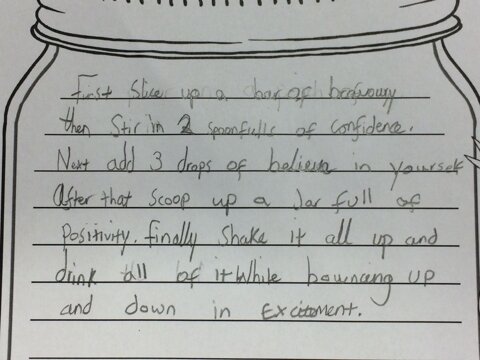 First Slice up a bar of bravoury
then Stir in 2 spoonfulls of confidence.
Next add 3 drops of believe in yourself
After that scoop up a Jar full of
Positivity. finally Shake it all up and
drink all of it While bouncing UP
and down in Excitement.